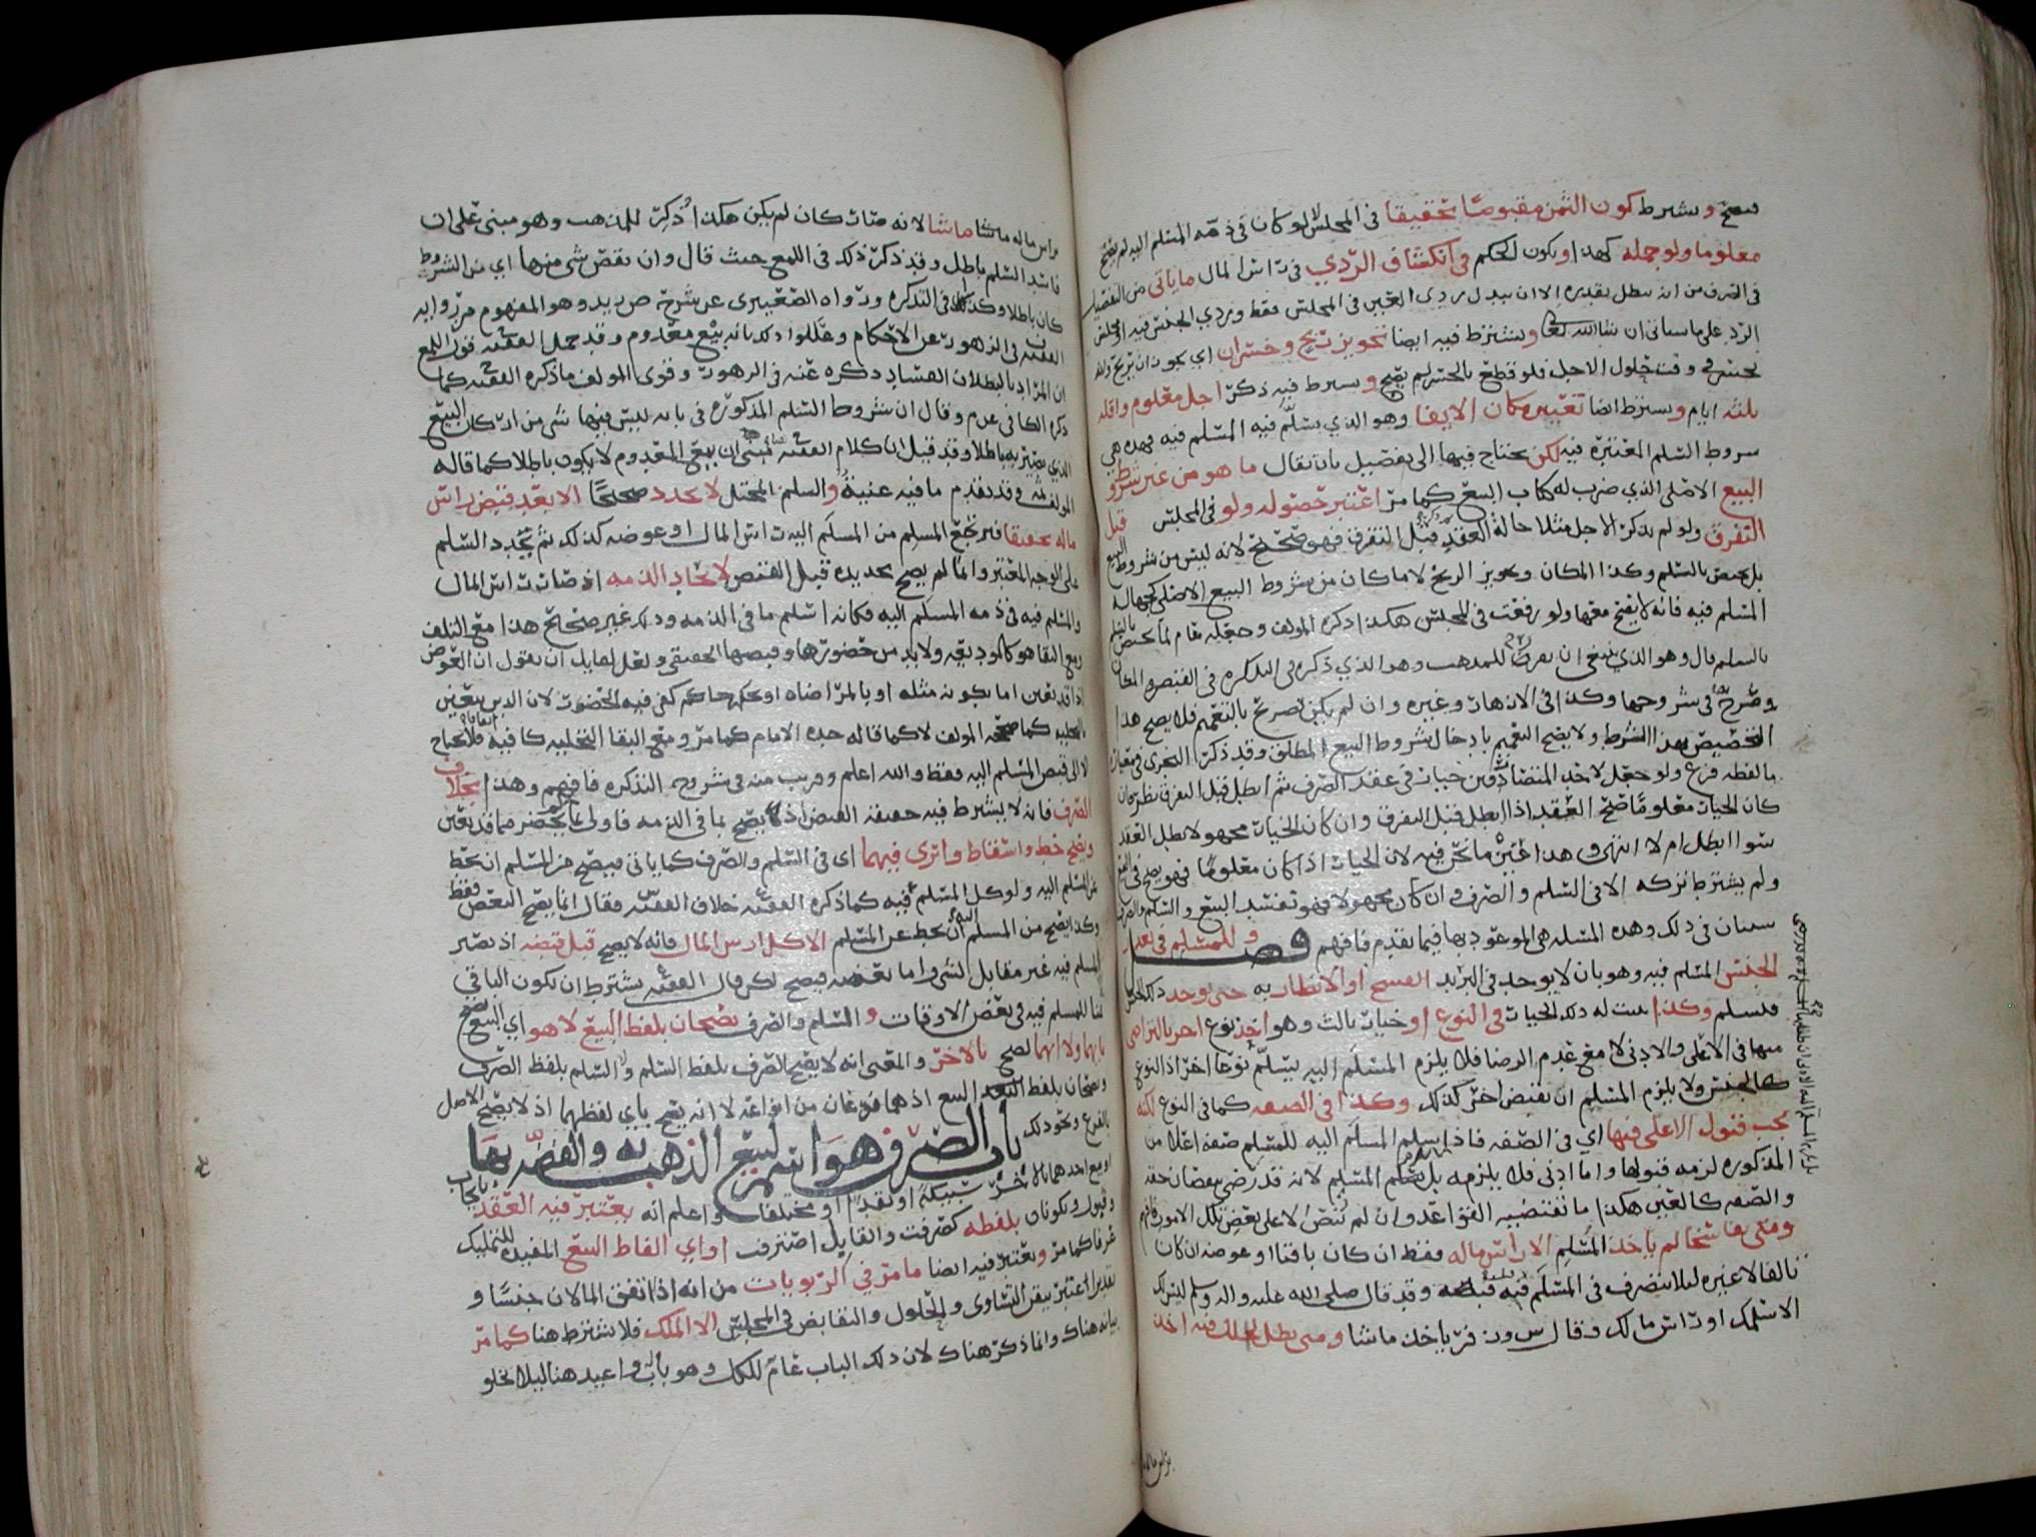 صح ويشترط كون الثمن مقبوضا تحقيقا في المجلس لا لو كان في ذمة المسلم اليه لم يصح
معلوما ولو جملة كهذا ويكون الحكم في انكشاف الردي في راس المال ما ياتي من التفصيل
في الصرف من انه يبطل بقدره الا ان يبدل ردي العين في المجلس فقط وردي الجنس فيه او مجلس
الرد على ما سياتي ان شا الله تعالى ويشترط فيه ايضا تجويز ربح وخسران اي يجوز ان يربح وان
يخسر في وقت حلول الاجل فلو قطع بالخسر لم يصح ويشترط فيه ذكر اجل معلوم واقله
ثلثه ايام ويشترط ايضا تعيين مكان الايفا وهو الذي يسلم فيه المسلم فيه فهذه هي
شروط السلم المعتبرة فيه لكن يحتاج فيها الى تفصيل بان يقال ما هو من غير شروط
البيع الاصلي الذي ضرب له كتاب البيع كما مر اعتبر حصوله ولو في المجلس قبل
التفرق ولو لم يذكر الاجل مثلا حالة العقد قبل التفرق فهو صحيح لانه ليس من شروط البيع
بل يختص بالسلم وكذا المكان وتجويز الربح لا ما كان من شروط البيع الاصلي كجهالة
المسلم فيه فانه لا يصح معها ولو رفعت في المجلس هكذا ذكره المولف وجعله عام لما يختص
بالسلم قال وهو الذي ينبغي ان يعرف للمذهب وهو الذي ذكره في التذكره في القبض والمكان
وصرح في شروحها وكذا في الازهار وغيره وان لم يكن تصريح بالتعميم فلا يصح هذا
التخصيص بهذا الشرط ولا يصح التعميم بادخال شروط البيع المطلق وقد ذكر النجري في معياره
ما لفظه فرع ولو جعل لاحد المتصارفين خيار في عقد الصرف ثم ابطل قبل التفرق نظر فان
كان الخيار معلوما صح العقد اذا ابطل قبل التفرق وان كان الخيار مجهولا بطل العقد
سوا ابطل ام لا انتهى هذا غير ما نحن فيه لان الخيار اذا كان معلوما فهو يصح في البيع
ولم يشترط تركه الا في السلم والصرف وان كان مجهولا فهو تفسد البيع والسلم والصرف
سيان في ذلك وهذه المسئله هي الموعود بها فيما تقدم فافهم فصل وللمسلم في تعذر
الجنس المسلم فيه وهو بان لا يوجد في البريد الفسخ او الانظار به حتى وجد ذلك الجنس
فيسلم وكذا يثبت له ذلك الخيار في النوع وخيار ثالث وهو اخذ نوع اخر بالتراضي
منهما في الاعلى والادنى لا مع عدم الرضا فلا يلزم المسلم اليه يسلم نوعا اخر اذ النوع
كالجنس ولا يلزم المسلم ان يقبض اخر كذلك وكذا في الصفه كما في النوع لكنه
يجب قبول الاعلى فيها اي في الصفه فاذا يسلم المسلم اليه للمسلم صفه اعلا من
المذكوره لزمه قبولها واما ادنى فلا يلزمه بل يسلم المسلم لانه قد رضي بنقصان حقه
والصفه كالعين هكذا ما تقتضيه القواعد وان لم ينص الا على بعض تلك الامور فافهم
ومتى تفاسخا لم ياخذ المسلم الا راس ماله فقط ان كان باقيا او عوضه ان كان
تالفا لا غيره ليلا يتصرف في المسلم فيه قبل قبضه وقد قال صلى الله عليه واله وسلم ليس لك
الا سلمك او راس مالك وقال س و ن فر ياخذ ما شا ومتى بطل السلم فيه اخذ
وراس ماله ما شا ما شا لانه صار كان لم يكن هكذا ذكر للمذهب وهو مبني على ان
فاسد السلم باطل وقد ذكر ذلك في اللمع حيث قال وان نقص شي منها اي من الشروط
كان باطلا وكذلك في التذكره ورواه الصعيتري عن شرح ض زيد وهو المفهوم من رواية
الفقيه ف في الزهور عن الاحكام وعللوا ذلك بانه بيع معدوم وقد حمل الفقيه ف قول اللمع
ان المراد بالبطلان الفساد ذكره عنه في الزهور وقوى المولف ما ذكره الفقيه كما
ذكره الكافي عن م وقال ان شروط السلم المذكوره في بابه ليس فيها شي من اركان البيع
الذي يصير به باطلا وقد قيل ان كلام الفقيه مبني ان بيع المعدوم لا يكون باطلا كما قاله
المولف وقد تقدم ما فيه غنية والسلم المختل لا يجدد صحيحا الا بعد قبض راس
ماله تحقيقا فيرتجع المسلم من المسلم اليه راس المال او عوضه كذلك ثم يجدد السلم
على الوجه المعتبر وانما لم يصح تجديده قبل القبض لاتحاد الذمه اذ صار راس المال
والمسلم فيه في ذمه المسلم اليه فكانه اسلم ما في الذمه وذلك غير صحيح هذا مع التلف
ومع البقا هو كالوديعه ولا بد من حضورها وقبضها الحقيقي ولعل لقايل ان يقول ان العوض
اذا قد تعين اما بكونه مثله او بالمراضاه او بحكم حاكم كفى فيه الحضور لان الدين يتعين
بالتخليه كما صححه المولف لا كما قاله جده الامام كما مر ومع البقا التخليه كافيه فلا يحتاج
الا الى قبض المسلم اليه فقط والله اعلم وقريب منه في شروح التذكره فافهم وهذا بخلاف
الصرف فانه لا يشترط فيه حقيقة القبض اذ يصح بما في الذمه فاولى بما يحضر مما قد تعين
ويصح حط واسقاط وابري فيهما اي في السلم والصرف كما ياتي فيصح من المسلم ان يحط
عن المسلم اليه ولو كل المسلم فيه كما ذكره الفقيه خلاف الفقيه فقال انما يصح البعض فقط
وكذا يصح من المسلم اليه ان يحط عن المسلم الا كل راس المال فانه لا يصح قبل قبضه اذ يصير
المسلم فيه غير مقابل لشي واما بعضه فيصح لكن قال الفقيه يشترط ان يكون الباقي
ثمنا للمسلم فيه في بعض الاوقات والسلم والصرف يصحان بلفظ البيع لا هو اي البيع يصح
بايهما ولا ايهما يصح بالاخر والمعنى انه لا يصح الصرف بلفظ السلم ولا السلم بلفظ الصرف
ويصحان بلفظ البيع اذ هما فرعان من انواعه لا انه يصح باي لفظهما اذ لا يصح الاصل
بالفرع ونحو ذلك باب الصرف هو اسم لبيع الذهب به والفضه بها
او بيع احدهما بالاخر سبيكة او نقدا او مختلفا واعلم انه يعتبر فيه العقد بايجاب
وقبول ويكونان بلفظه كصرفت والقابل اصترفت او اي الفاظ البيع المفيده للتمليك
عرفا كما مر ويعتبر فيه ايضا ما مر في الربويات من انه اذا اتفق المالان جنسا و
تقديرا اعتبر تيقن التساوي والحلول والتقابض في المجلس الا الملك فلا يشترط هنا كما مر
بيانه هناك وانما ذكر هناك لان ذلك الباب عام للكل وهو بابه واعيد هنا ليلا يخلو